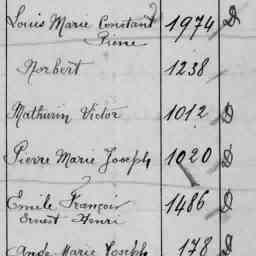 Louis Marie Constant 1974 D
Pierre
Norbert 1238
Mathurin Victor 1012 D
Pierre Marie Joseph 1020 D
Emile François 1486 D
Ernest Henri
Ange Marie Joseph 178 D